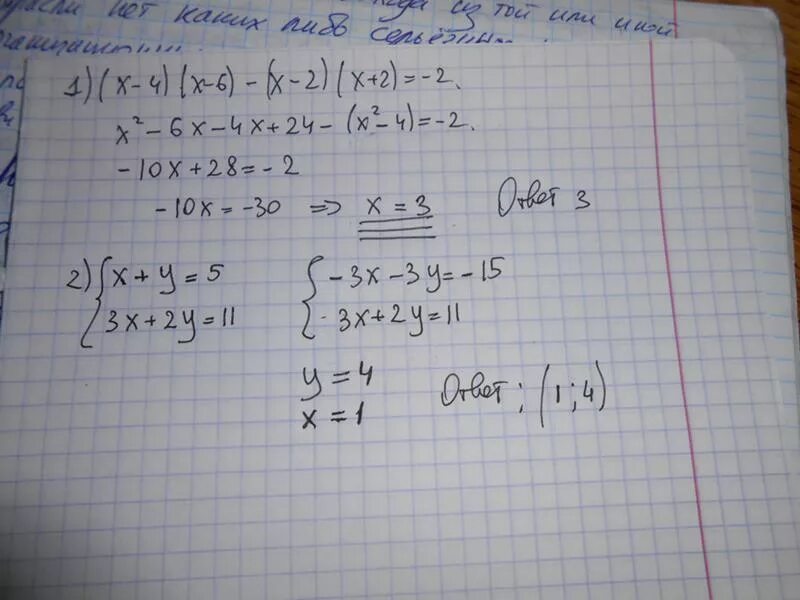 нет каких либо из той или иной
серьёзных
1) (x-4)(x-6)-(x-2)(x+2)=-2.
x²-6x-4x+24-(x²-4)=-2.
-10x+28=-2
-10x=-30 => x=3 Ответ 3
2) { x+y=5 { -3x-3y=-15
3x+2y=11 3x+2y=11
y=4
x=1 Ответ: (1;4)